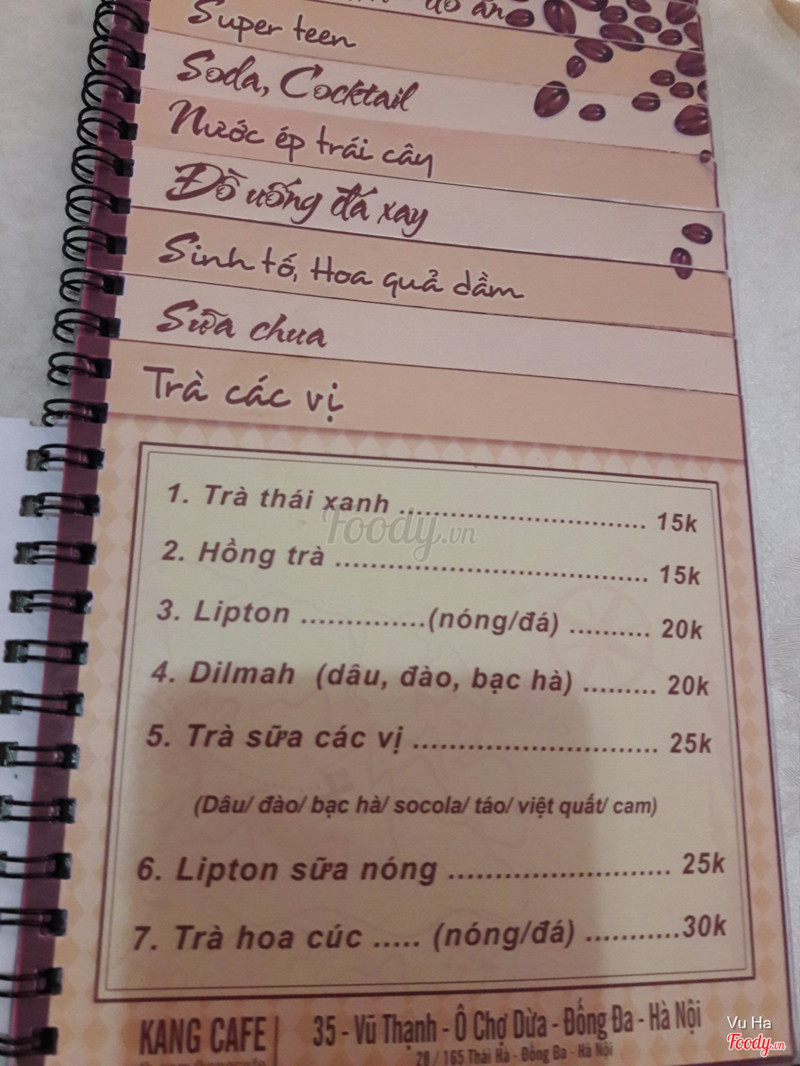 đồ ăn
Super teen
Soda, Cocktail
Nước ép trái cây
Đồ uống đá xay
Sinh tố, Hoa quả dầm
Sữa chua
Trà các vị
1. Trà thái xanh ............................ 15k
Foody.vn
2. Hồng trà ................................... 15k
3. Lipton ..............(nóng/đá) ......... 20k
4. Dilmah (dâu, đào, bạc hà) ........ 20k
5. Trà sữa các vị ........................... 25k
(Dâu/ đào/ bạc hà/ socola/ táo/ việt quất/ cam)
6. Lipton sữa nóng ........................ 25k
7. Trà hoa cúc ..... (nóng/đá) ...........30k
KANG CAFE | 35 - Vũ Thạnh - Ô Chợ Dừa - Đống Đa - Hà Nội
28 / 165 Thái Hà - Đống Đa - Hà Nội
Vu Ha
Foody.vn